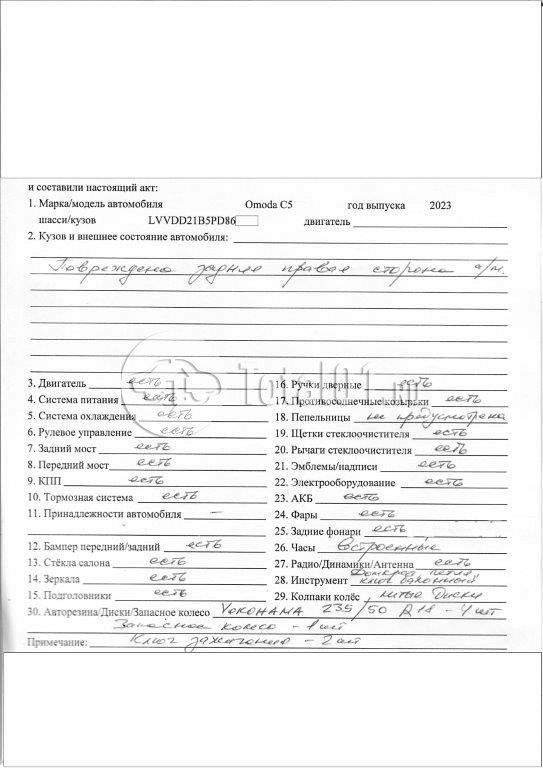 и составили настоящий акт:
1. Марка/модель автомобиля Omoda C5 год выпуска 2023
шасси/кузов LVVDD21B5PD86 двигатель
2. Кузов и внешнее состояние автомобиля:
Повреждена задняя правая сторона а/м.
Total01.ru
3. Двигатель есть 16. Ручки дверные есть
4. Система питания есть 17. Противосолнечные козырьки есть
5. Система охлаждения есть 18. Пепельницы не предусмотрена
6. Рулевое управление есть 19. Щетки стеклоочистителя есть
7. Задний мост есть 20. Рычаги стеклоочистителя есть
8. Передний мост есть 21. Эмблемы/надписи есть
9. КПП есть 22. Электрооборудование есть
10. Тормозная система есть 23. АКБ есть
11. Принадлежности автомобиля — 24. Фары есть
25. Задние фонари есть
12. Бампер передний/задний есть 26. Часы встроенные
13. Стёкла салона есть 27. Радио/Динамики/Антенна есть
14. Зеркала есть 28. Инструмент Домкрат, петля ключ балонный
15. Подголовники есть 29. Колпаки колёс литые диски
30. Авторезина/Диски/Запасное колесо YOKOHAMA 235/50 R18 - 4 шт
Запасное колесо - 1 шт
Примечание: Ключ зажигания - 2 шт